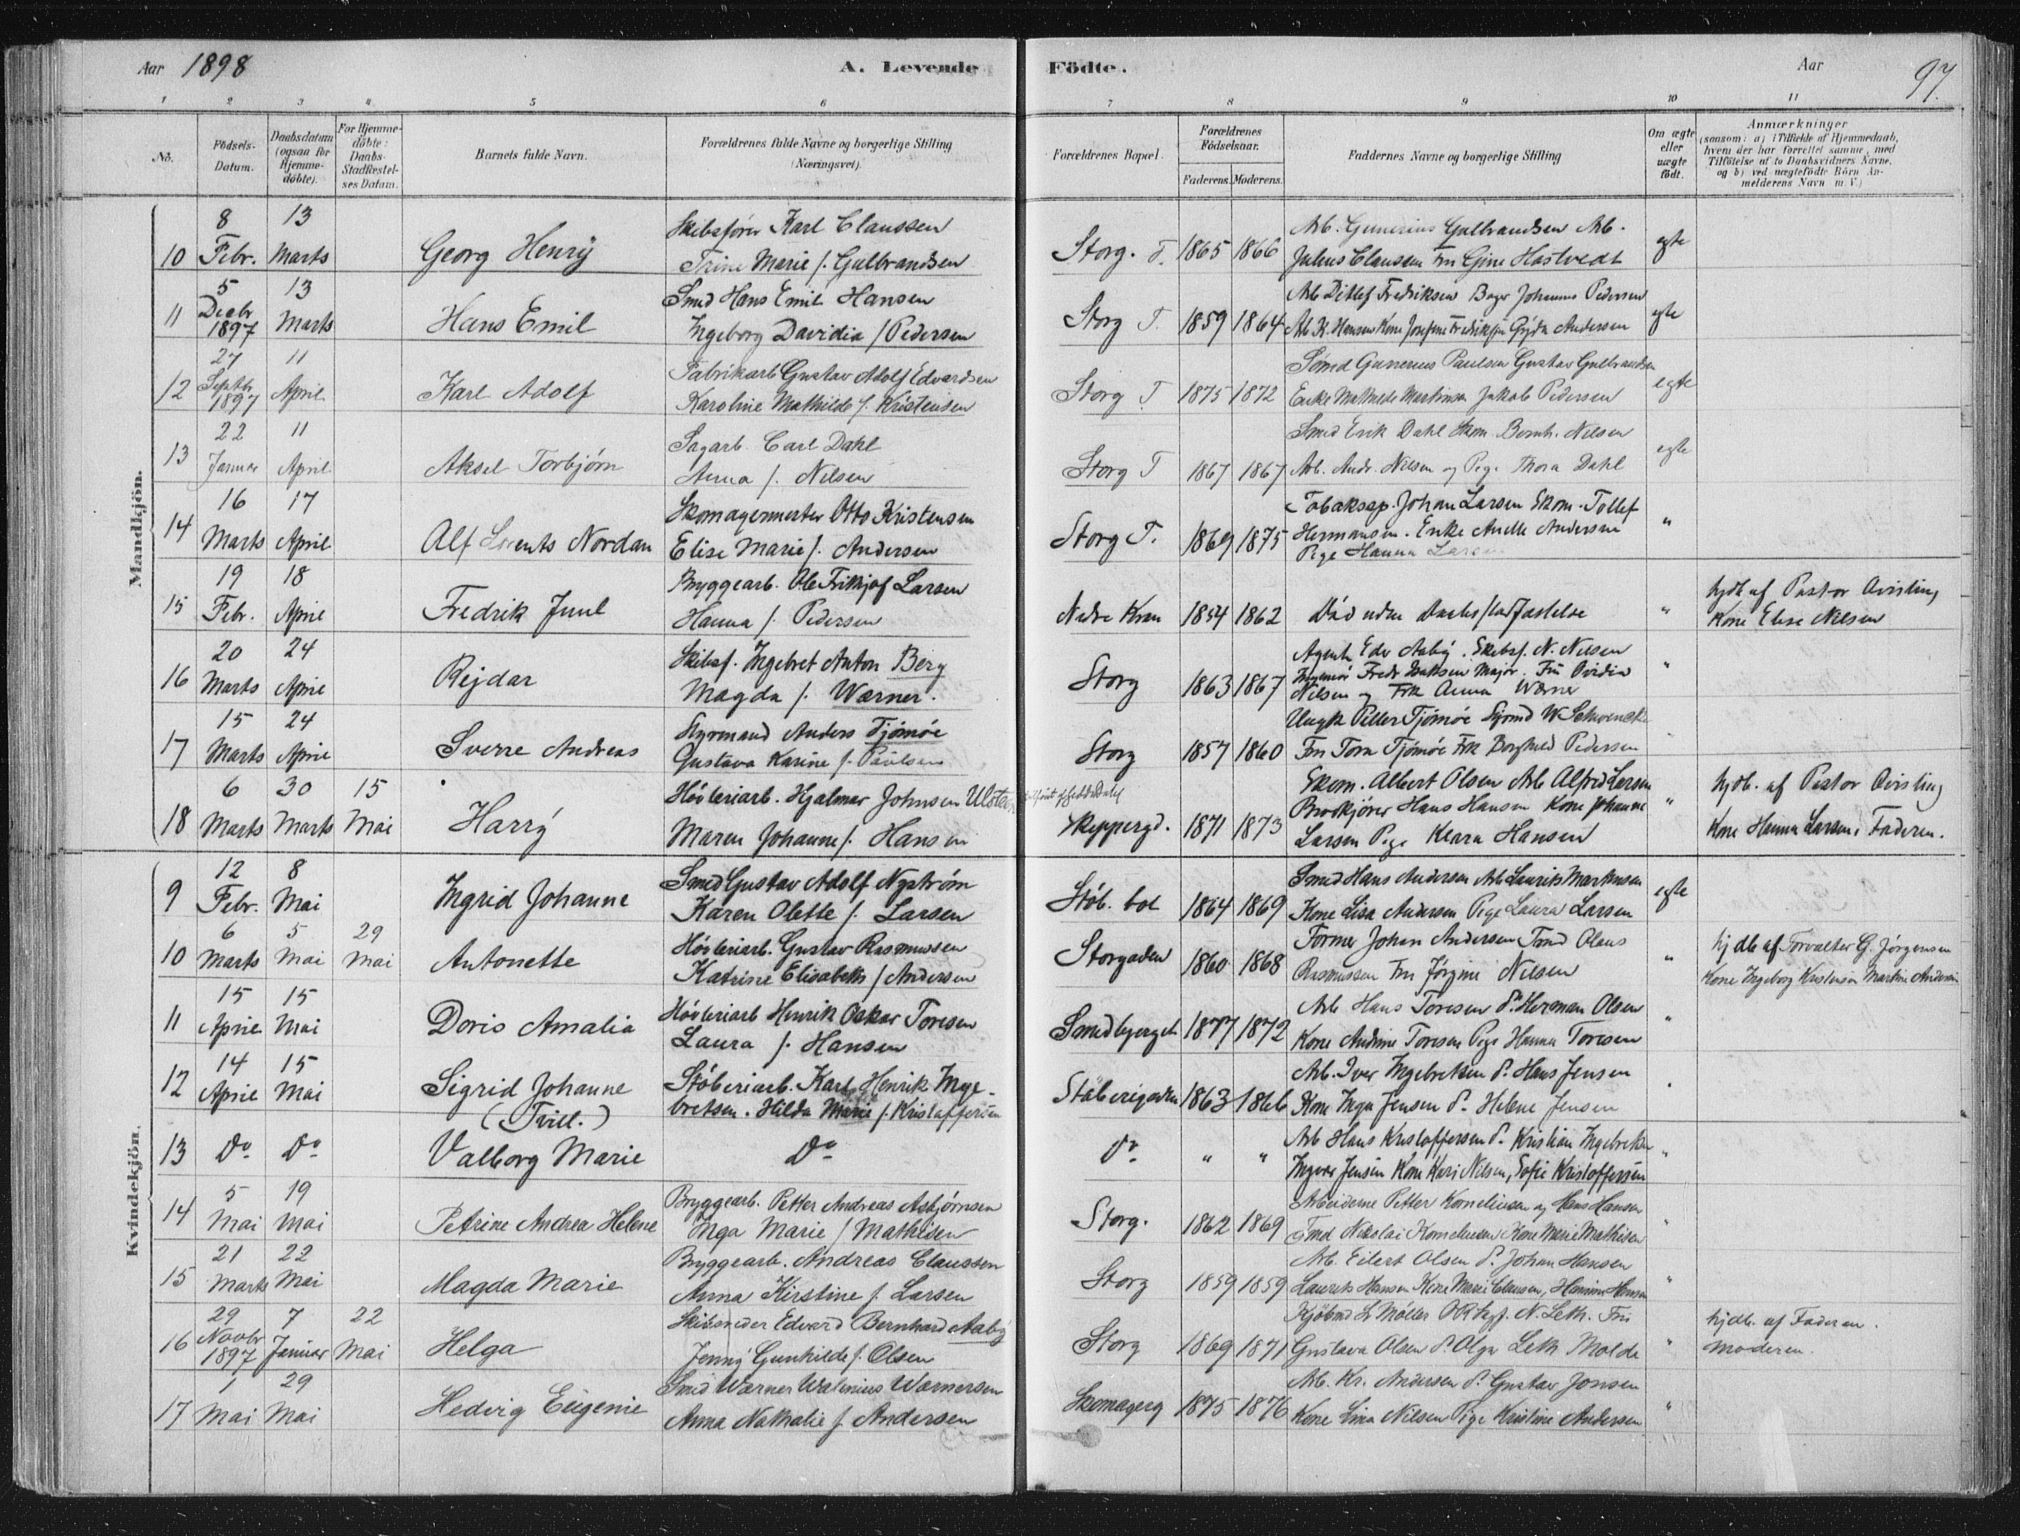 Aar 1898 A. Levende Födte. Aar 97.
1 2 3 4 5 6 7 8 9 10 11
No. Födsels-Datum. Daabsdatum (ogsaa for Hjemme-döbte). For Hjemme-döbte: Daabs-Stadfæstel-ses Datum. Barnets fulde Navn. Forældrenes fulde Navne og borgerlige Stilling (Næringsvei). Forældrenes Bopæl. Forældrenes Födselsaar. Faderens. Moderens. Faddernes Navne og borgerlige Stilling Om ægte eller uægte födt. Anmærkninger
(saasom: a) i Tilfælde af Hjemmedaab, hvem der har forrettet samme, med Tilföielse af to Daabsvidners Navne, og b) ved uægtefödte Börn An-melderens Navn m. V.)
Mandkjön.
8 13 Skibsfører Karl Claussen Arb. Gunerius Gulbrandsen Arb.
10 Febr. Marts Georg Henrÿ Trine Marie f. Gulbrandsen Storg. T. 1865 1866 Julius Clausen Fru Gine Hastvedt egte
5 13 Smed Hans Emil Hansen Arb Ditlef Fredriksen Bager Johannes Pedersen
11 Decbr 1897 Marts Hans Emil Ingeborg Davidia f. Pedersen Storg T. 1859 1864 Arb K. Hansen Kone Josefine Fredriksen Andersen egte
27 11 Fabrikarb Gustav Adolf Edvardsen Smed Gunerius Paulsen Gustav Gulbrandsen
12 Septbr 1897 April Karl Adolf Karoline Mathilde f. Kristensen Storg T. 1875 1872 Enke Mathilde Martinsen Jakob Pedersen egte
22 11 Sagarb. Carl Dahl Smed Erik Dahl Skom. Bernh. Nilsen
13 Januar April Aksel Torbjørn Anna f. Nilsen Storg T 1867 1867 Arb. Andr. Nilsen og Pige Thora Dahl egte
16 17 Skomagermester Otto Kristensen Tobakssp. Johan Larsen Skom. Tollef
14 Marts April Alf Lorents Nordan Elise Marie f. Andersen Storg T. 1869 1875 Hermansen. Enke Anelle Andersen "
Pige Hanna Larsen
19 18 Bryggearb. Ole Frithjof Larsen hjdb af Pastor Qvisling
15 Febr. April Fredrik Juul Hanna f. Pedersen Nedre Kran 1854 1862 Død uden Daabs " Kone Elise Nilsen
20 24 Skibsf. Ingebret Anton Berg Agent Eder Aabÿ. Skibsf. N. Nilsen
16 Marts April Rejdar Magda f. Wærner. Storg 1863 1867 Major. Fru Ovidia "
Nilsen og Frk Anna Wærner
15 24 Styrmand Anders Tjømøe Petter Tjømøe
17 Marts April Sverre Andreas Gustava Karine f. Paulsen Storg 1857 1860 Fru Tora Tjømøe Frk Borghild Pedersen "
6 30 15 Høvleriarb. Hjalmar Johnsen Ulstein Skom. Albert Olsen Arb Alfred Larsen hjdb. af Pastor Qvisling
18 Marts Marts Mai Harrÿ Maren Johanne f. Hansen Skippergd. 1871 1873 Hans Hansen Kone Johanne " Kone Hanna Larsen, Faderen.
Larsen Pige Klara Hansen
Kvindekjön.
12 8 Smed Gustav Adolf Nyström Smed Hans Andersen Arb Laurits Markusen
9 Febr. Mai Ingrid Johanne Karen Olette f. Larsen Støb. bol 1864 1869 Kone Lisa Andersen Pige Laura Larsen egte
6 5 29 Høvleriarb. Gustav Rasmussen Former Johan Andersen Tmd Olaus hjdb af Forvalter G. Jørgensen
10 Marts Mai Mai Antonette Katrine Elisabeth f. Andersen Storgaden 1860 1868 Rasmussen Fru Jørgine Nilsen " Kone Ingeborg Kristensen Martine Andersen
15 15 Høvleriarb Henrik Oskar Toresen Arb Hans Toresen do Herman Olsen
11 April Mai Doris Amalia Laura f. Hansen Smedbjerget 1877 1872 Kone Andrine Toresen Pige Hanna Toresen "
14 15 Støberiarb. Karl Henrik Inge- Arb. Iver Ingebretsen do Hans Jensen
12 April Mai Sigrid Johanne bretsen. Hilda Marie f. Kristoffersen Støberigaden 1863 1866 Kone Inga Jensen do Helene Jensen "
(Tvill.)
13 Do Do Valborg Marie Do Do " " Arb Hans Kristoffersen do Kristian Ingebretsen "
Ingvar Jensen Kone Kari Nilsen, Sofie Kristoffersen
5 19 Bryggearb. Petter Andreas Asbjørnsen Arbeiderne Petter Korneliusen og Hans Hansen
14 Mai Mai Petrine Andrea Helene Inga Marie f. Mathisen Storg. 1862 1869 Tmd Nikolai Korneliusen Kone Marie Mathisen "
21 22 Bryggearb. Andreas Claussen Arb. Eilert Olsen do Johan Hansen
15 Marts Mai Magda Marie Anna Kirstine f. Larsen Storg 1859 1859 Laurits Hansen Kone Marie Clausen, Hansen "
29 7 22 Skibsreder Edvard Bernhard Aabÿ Kjøbmd Møller N. Leth. Fru hjdb. af Faderen.
16 Novbr 1897 Januar Mai Helga Jennÿ Gunhilde f. Olsen Storg 1869 1871 Gustava Olsen do Olga Leth Molde " Moderen.
1 29 Smed Wærner Walinius Wærnersen Arb. Kr. Andersen do Gustav Jonsen
17 Mai Mai Hedvig Eugenie Anna Nathalie f. Andersen Skomagerg 1875 1876 Kone Lina Nilsen Pige Kristine Andersen "